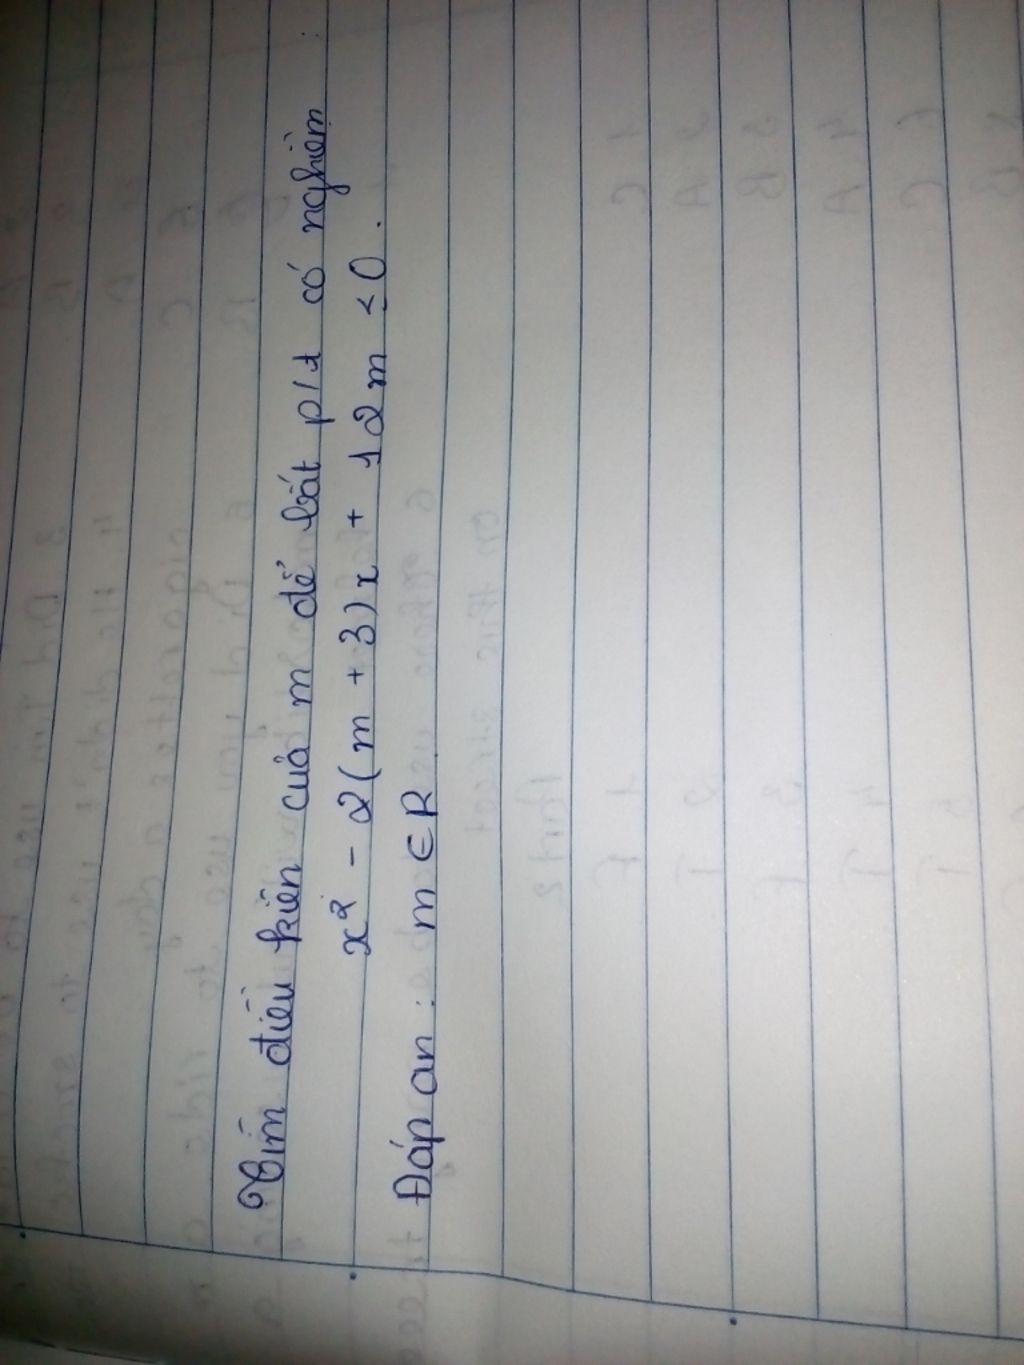 Tìm điều kiện của m để bất p/t có nghiệm
x² - 2(m + 3)x + 12m ≤ 0.
Đáp an : m ∈ R